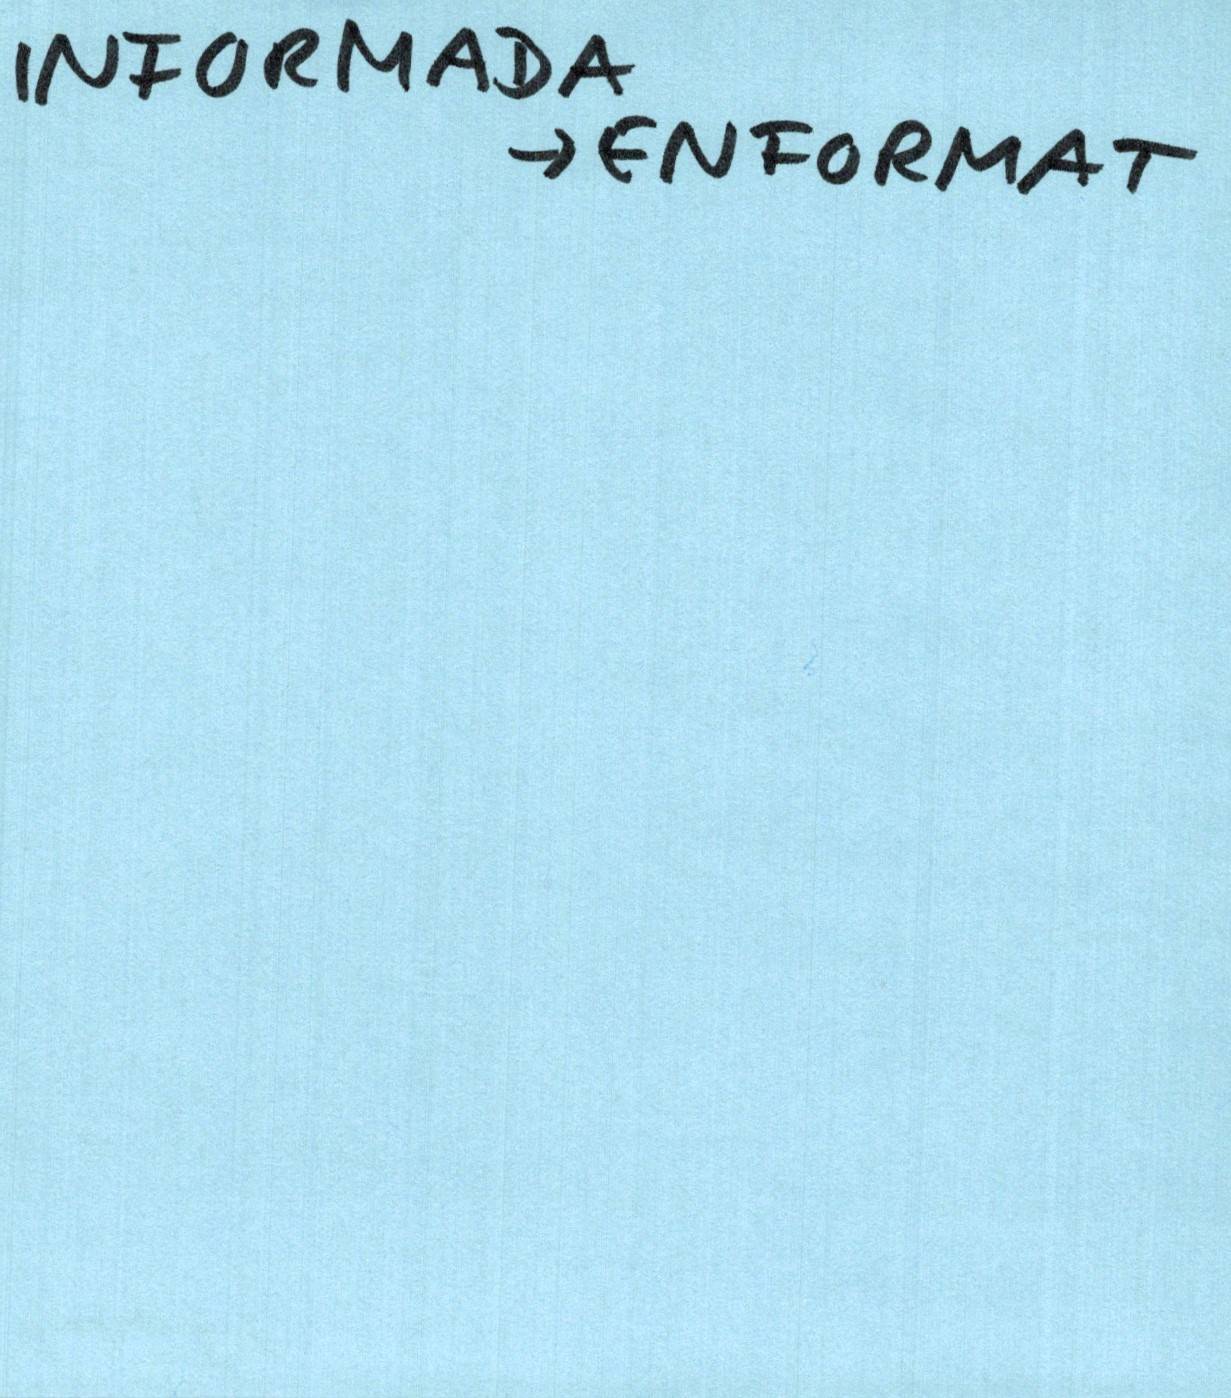 INFORMADA
→ENFORMAT